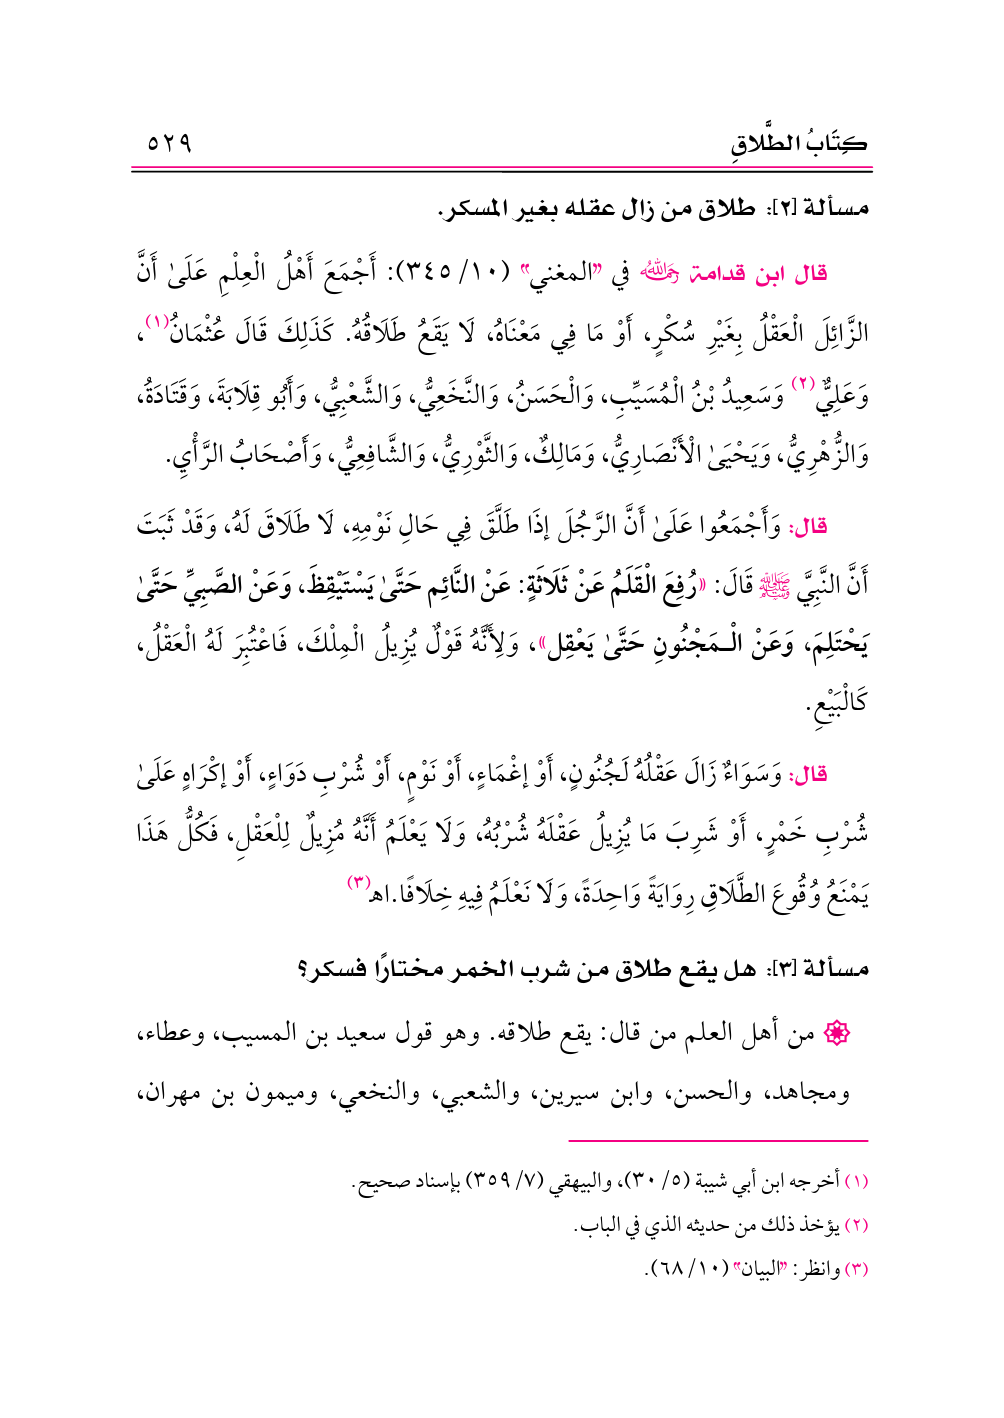 كِتَابُ الطَّلَاقِ ٥٢٩
مسألة [٢]: طلاق من زال عقله بغير المسكر.
قال ابن قدامة رَحِمَهُ اللهُ في "المغني" (١٠/ ٣٤٥): أَجْمَعَ أَهْلُ الْعِلْمِ عَلَىٰ أَنَّ
الزَّائِلَ الْعَقْلُ بِغَيْرِ سُكْرٍ، أَوْ مَا فِي مَعْنَاهُ، لَا يَقَعُ طَلَاقُهُ. كَذَلِكَ قَالَ عُثْمَانُ(١)،
وَعَلِيٌّ(٢) وَسَعِيدُ بْنُ الْمُسَيِّبِ، وَالْحَسَنُ، وَالنَّخَعِيُّ، وَالشَّعْبِيُّ، وَأَبُو قِلَابَةَ، وَقَتَادَةُ،
وَالزُّهْرِيُّ، وَيَحْيَىٰ الْأَنْصَارِيُّ، وَمَالِكٌ، وَالثَّوْرِيُّ، وَالشَّافِعِيُّ، وَأَصْحَابُ الرَّأْيِ.
قال: وَأَجْمَعُوا عَلَىٰ أَنَّ الرَّجُلَ إذَا طَلَّقَ فِي حَالِ نَوْمِهِ، لَا طَلَاقَ لَهُ، وَقَدْ ثَبَتَ
أَنَّ النَّبِيَّ ﷺ قَالَ: «رُفِعَ الْقَلَمُ عَنْ ثَلَاثَةٍ: عَنْ النَّائِمِ حَتَّىٰ يَسْتَيْقِظَ، وَعَنْ الصَّبِيِّ حَتَّىٰ
يَحْتَلِمَ، وَعَنْ الْـمَجْنُونِ حَتَّىٰ يَعْقِل»، وَلِأَنَّهُ قَوْلٌ يُزِيلُ الْمِلْكَ، فَاعْتُبِرَ لَهُ الْعَقْلُ،
كَالْبَيْعِ.
قال: وَسَوَاءٌ زَالَ عَقْلُهُ لَجُنُونٍ، أَوْ إغْمَاءٍ، أَوْ نَوْمٍ، أَوْ شُرْبِ دَوَاءٍ، أَوْ إكْرَاهٍ عَلَىٰ
شُرْبِ خَمْرٍ، أَوْ شَرِبَ مَا يُزِيلُ عَقْلَهُ شُرْبُهُ، وَلَا يَعْلَمُ أَنَّهُ مُزِيلٌ لِلْعَقْلِ، فَكُلُّ هَذَا
يَمْنَعُ وُقُوعَ الطَّلَاقِ رِوَايَةً وَاحِدَةً، وَلَا نَعْلَمُ فِيهِ خِلَافًا.اهـ(٣)
مسألة [٣]: هل يقع طلاق من شرب الخمر مختارًا فسكر؟
من أهل العلم من قال: يقع طلاقه. وهو قول سعيد بن المسيب، وعطاء،
ومجاهد، والحسن، وابن سيرين، والشعبي، والنخعي، وميمون بن مهران،
(١) أخرجه ابن أبي شيبة (٥/ ٣٠)، والبيهقي (٧/ ٣٥٩) بإسناد صحيح.
(٢) يؤخذ ذلك من حديثه الذي في الباب.
(٣) وانظر: "البيان" (١٠/ ٦٨).